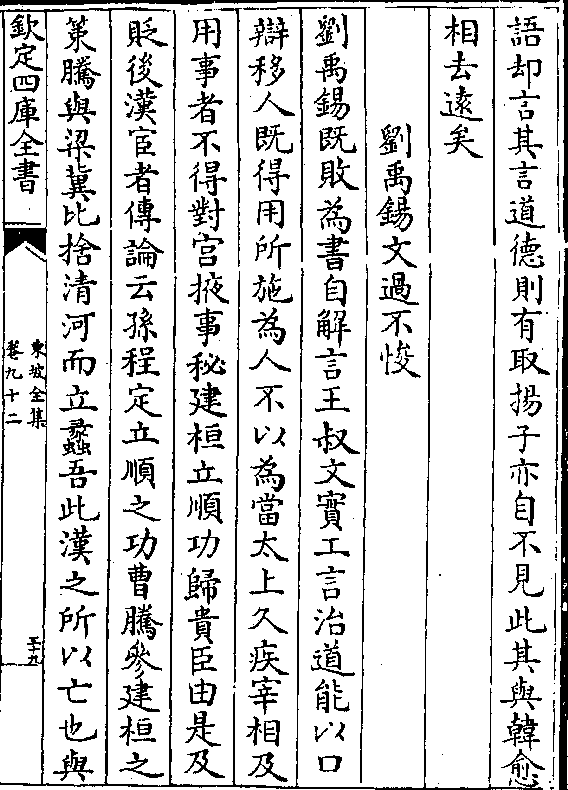 語却言其言道德則有取揚子亦自不見此其與韓愈
相去遠矣
劉禹錫文過不悛
劉禹錫既敗為書自解言王叔文實工言治道能以口
辯移人既得用所施為人不以為當太上久疾宰相及
用事者不得對宫掖事秘建桓立順功歸貴臣由是及
貶後漢宦者傳論云孫程定立順之功曹騰參建桓之
策騰與梁冀比捨清河而立蠡吾此漢之所以亡也與
欽定四庫全書
東坡全集
卷九十二
三十九